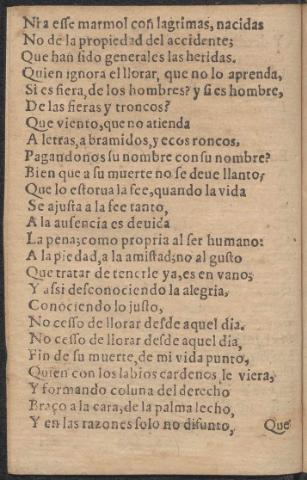 Ni a esse marmol con lagrimas, nacidas
No de la propiedad del accidente;
Que han sido generales las heridas.
Quien ignora el llorar, que no lo aprenda,
Si es fiera, de los hombres? y si es hombre,
De las fieras y troncos?
Que viento, que no atienda
A letras, a bramidos, y ecos roncos,
Pagandonos su nombre con su nombre?
Bien que a su muerte no se deue llanto,
Que lo estorua la fee, quando la vida
Se ajusta a la fee tanto,
A la ausencia es deuida
La pena; como propria al ser humano:
A la piedad, a la amistad; no al gusto
Que tratar de tenerle ya, es en vano;
Y assi desconociendo la alegria,
Conociendo lo justo,
No cesso de llorar desde aquel dia.
No cesso de llorar desde aquel dia,
Fin de su muerte, de mi vida punto,
Quien con los labios cardenos le viera,
Y formando coluna del derecho
Braço a la cara, de la palma lecho,
Y en las razones solo no difunto,
Que